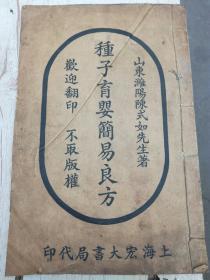 山東濰陽陳式如先生著
種子育嬰簡易良方
歡迎翻印 不取版權
上海宏大書局代印